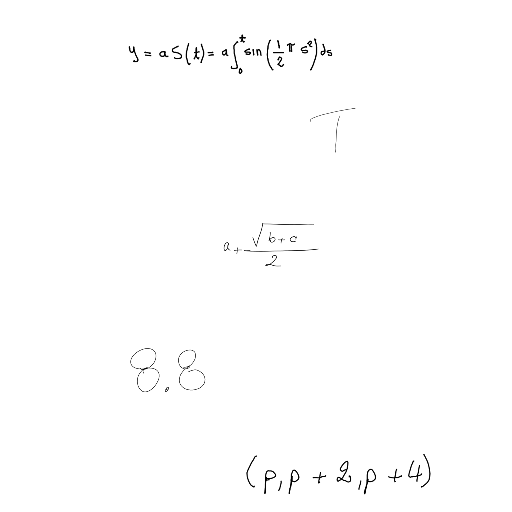 y = a S(t) = a∫₀ᵗ sin(½ π s²) ds
T
a + √(b+c)/2
8.8
(p, p + 2, p + 4)